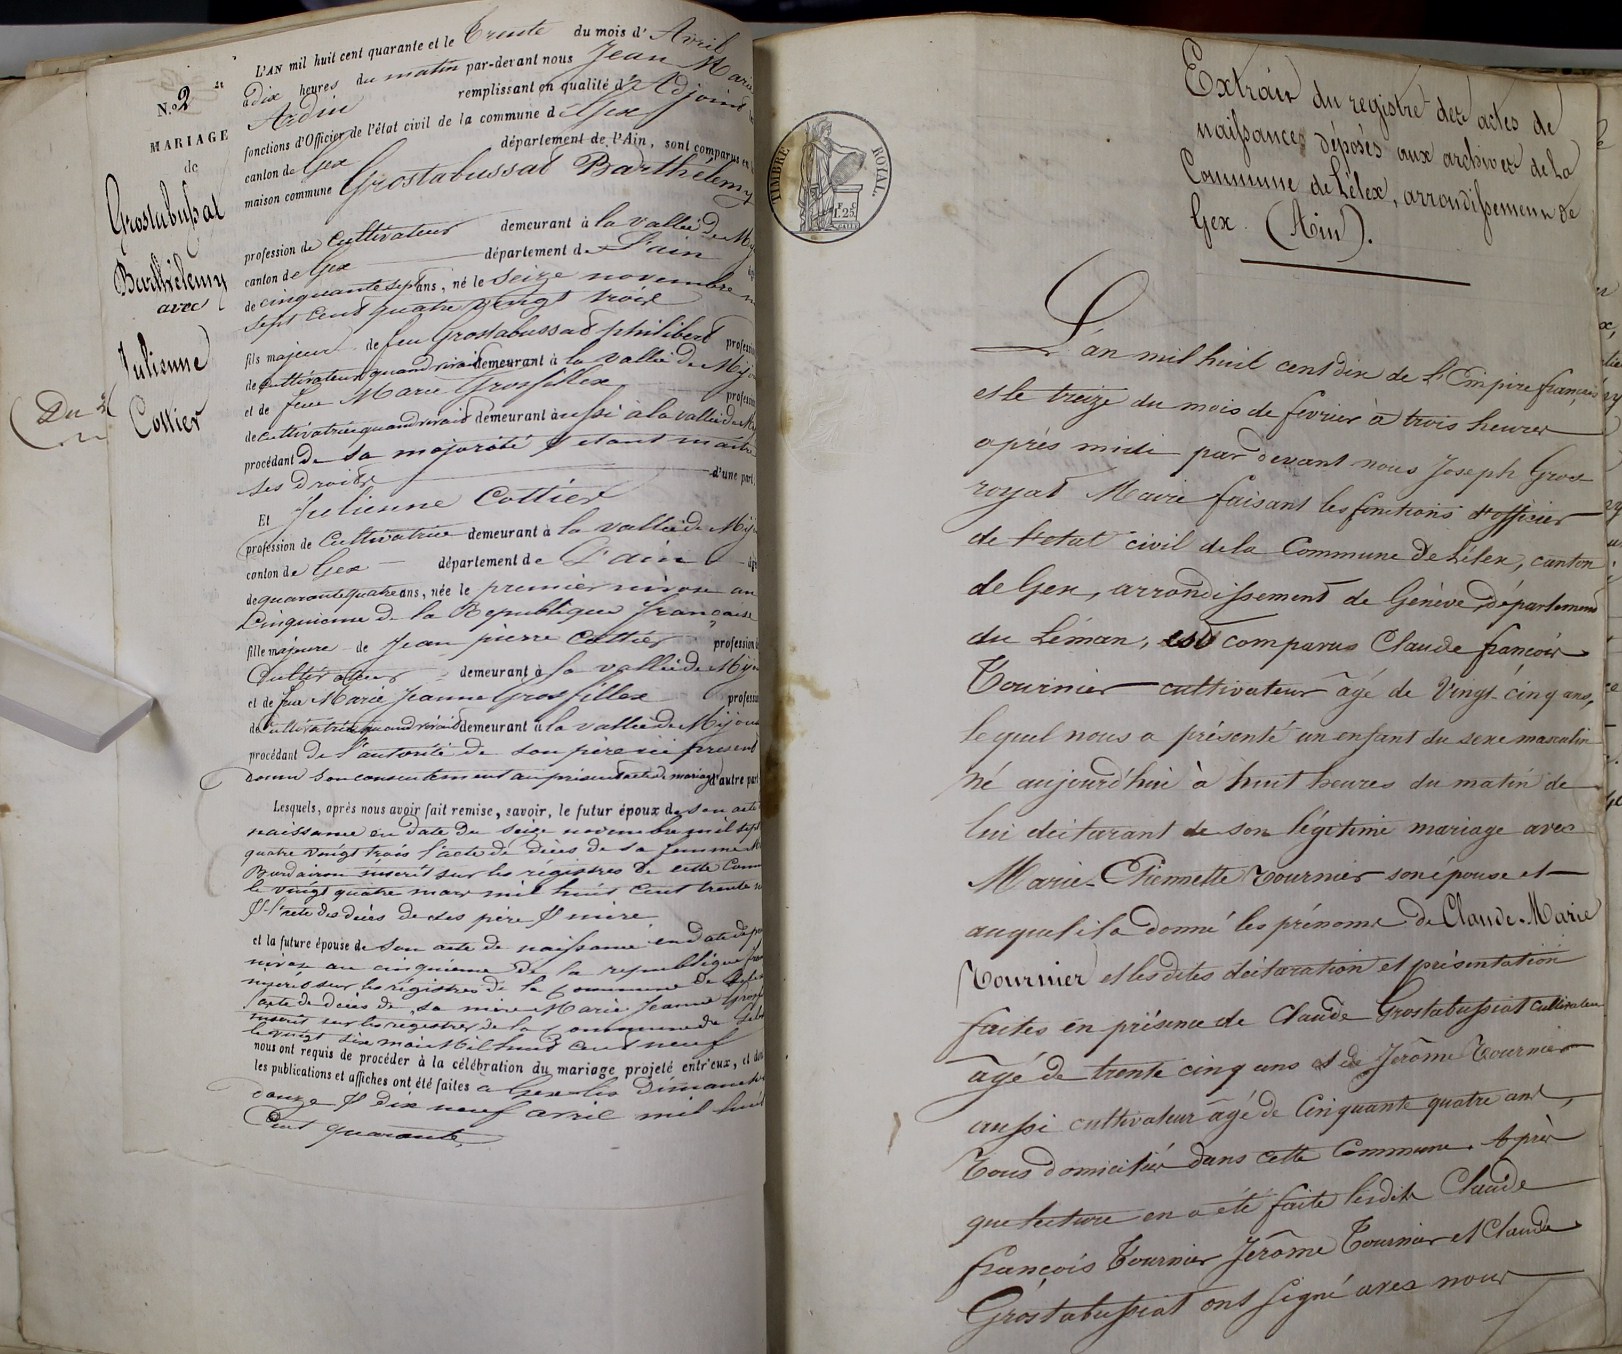 N.o 2
MARIAGE
de
Grostabussat
Barthélemy
avec
Julienne
Cottier
Du 2
L'AN mil huit cent quarante et le Trente du mois d'Avril
à dix heures du matin par-devant nous Jean Marie
Ardin remplissant en qualité d'Adjoint les
fonctions d'Officier de l'état civil de la commune de Gex
canton de Gex département de l'Ain, sont comparus en
maison commune Grostabussat Barthélemy
profession de Cultivateur demeurant à la vallée de Mij
canton de Gex département de L'ain âgé
de cinquante sept ans, né le seize novembre m
sept cent quatre vingt trois
fils majeur de feu Grostabussat philibert profession
de Cultivateur quand vivait demeurant à la vallée de Mijou
et de feue Marie Grosfillex profession
de Cultivatrice quand vivait demeurant aussi à la vallée de Mi
procédant de sa majorité & étant maître
ses Droits d'une part,
Et Julienne Cottier
profession de Cultivatrice demeurant à la vallée de Mij
canton de Gex département de L'ain âgée
de quarante quatre ans, née le premier nivose an
Cinquieme de la République française
fille majeure de Jean pierre Cottier profession de
Cultivateur demeurant à la vallée de Mijou
et de feue Marie Jeanne Grosfillex profession
de Cultivatrice quand vivait demeurant à la vallée de Mijoux
procédant de l'autorité de son pere ici présent
donne son consentement au présent acte de mariage d'autre part
Lesquels, après nous avoir fait remise, savoir, le futur époux de son acte
naissance en date du seize novembre mil sept
quatre vingt trois l'acte de décès de sa femme M
inscrit sur les régistres de cette Comm
le vingt quatre mars mil huit Cent trente
& l'acte des décès de ses père & mère
et la future épouse de son acte de naissance en date du p
nivose an cinquieme de la république fran
inscrit sur les régistres de la Commune de
l'acte de décès de sa mère Marie Jeanne Grosf
inscrit sur les registres de la Commune de Lél
le vingt six mai Mil huit cent neuf
nous ont requis de procéder à la célébration du mariage projeté entr'eux, et don
les publications et affiches ont été faites à Gex les Dimanches
douze & dix neuf avril mil huit
Cent quarante,
TIMBRE ROYAL
1F. 25C.
Extrait du registre des actes de
naissances déposés aux archives de la
Commune de Lélex, arrondissement de
Gex (Ain).
L'an mil huit cent dix de l'Empire français
et le treize du mois de fevrier à trois heures
après midi par devant nous Joseph Gros
royat Maire faisant les fonctions d'officier
de l'etat civil de la Commune De Lélex, canton
de Gex, arrondissement de Genève, département
du Léman, est comparus Claude françois
Tournier cultivateur âgé de Vingt-cinq ans,
lequel nous a présenté un enfant du sexe masculin
né aujourd'hui à huit heures du matin de
lui déclarant de son légitime mariage avec
Marie-Etiennette Tournier son épouse et
auquel il a donné les prénoms de Claude-Marie
Tournier et les dites déclaration et présentation
faites en présence de Claude Grostabussiat Cultivateur
âgé de trente cinq ans & de Jerôme Tournier
aussi cultivateur âgé de Cinquante quatre ans,
Tous domiciliés dans cette Commune. Après
que lecture en a été faite lesdits Claude
françois Tournier Jerôme Tournier et Claude
Grostabussiat ont signé avec nous